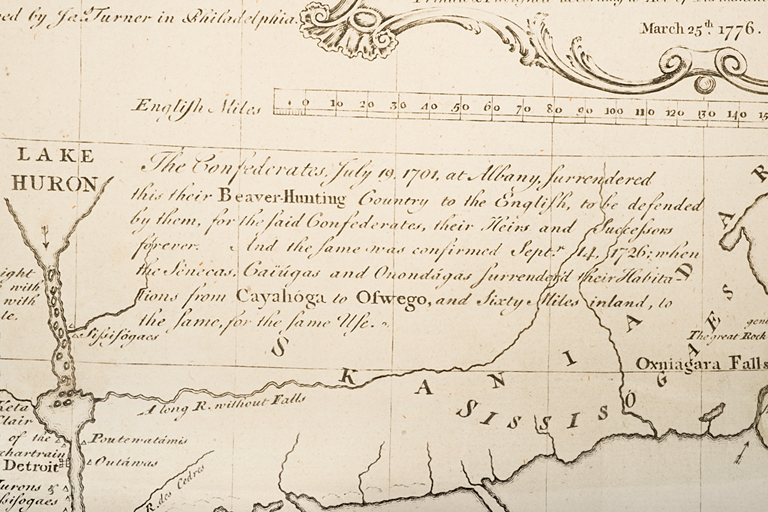 ed by Jas. Turner in Philadelphia.
March 25th. 1776.
English Miles
0 10 20 30 40 50 60 70 80 90 100 110 120 130 140
LAKE
HURON
The Confederates, July 19, 1701, at Albany, surrendered
this their Beaver-Hunting Country to the English, to be defended
by them, for the said Confederates, their Heirs and Successors
forever. And the same was confirmed Septr. 14, 1726; when
the Senecas, Gaiúgas and Onondágas surrender'd their Habita-
tions from Cayahóga to Oswego, and Sixty Miles inland, to
the same, for the same Use.
ight
with
with
te.
Sissisógaes
SKANIADAR
SISSISÓGAES
The great Rock
Oxniagara Falls
A long R. without Falls
Clair
of the
chartrain
Detroit
Poutewatamis
Outáwas
Hurons &
R. des Cedres